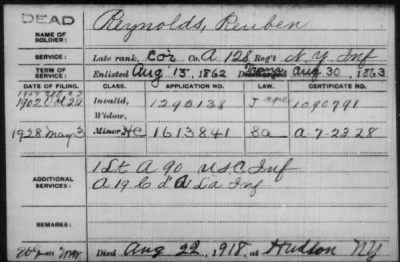 DEAD
NAME OF SOLDIER: Reynolds, Reuben
SERVICE: Late rank, Cor Co. A 128 Reg't N.Y. Inf
TERM OF SERVICE: Enlisted Aug 13, 1862 Discharged Trans Aug 30, 1863
DATE OF FILING. CLASS. APPLICATION NO. LAW. CERTIFICATE NO.
1902 Oct 22 Invalid, 1290138 1090791
Widow,
1928 May 3 Minor HC 1613841 8a A-7-23 28
ADDITIONAL SERVICES: 1 Lt A 90 U.S.C. Inf
A 19 C d'A La Inf
REMARKS:
Died Aug 22, 1918, at Hudson NY